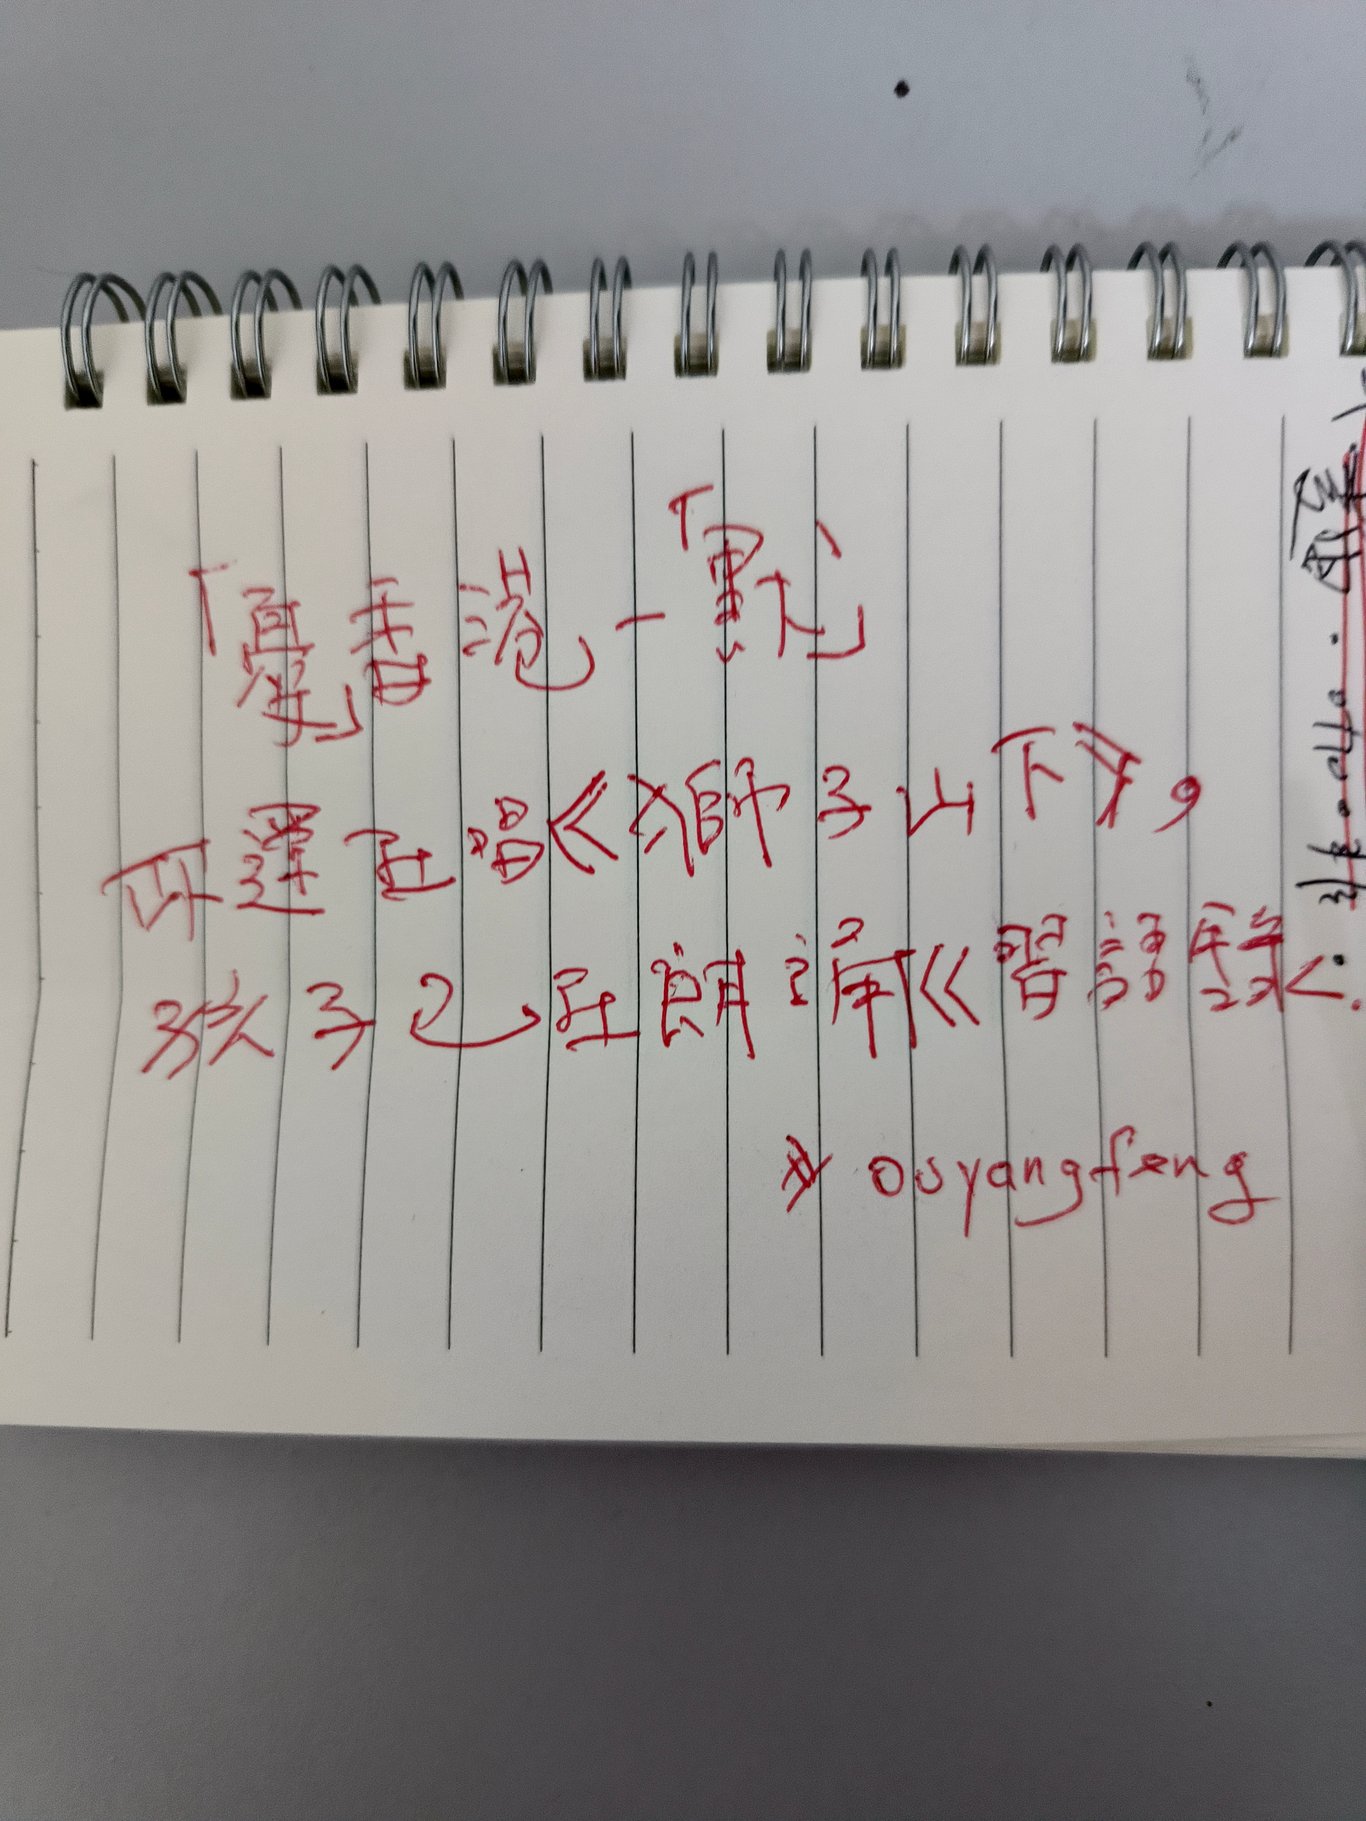 「憂」香港一「默」
還在唱《獅子山下》，
孩子已在朗誦《習語錄
ouyangfeng